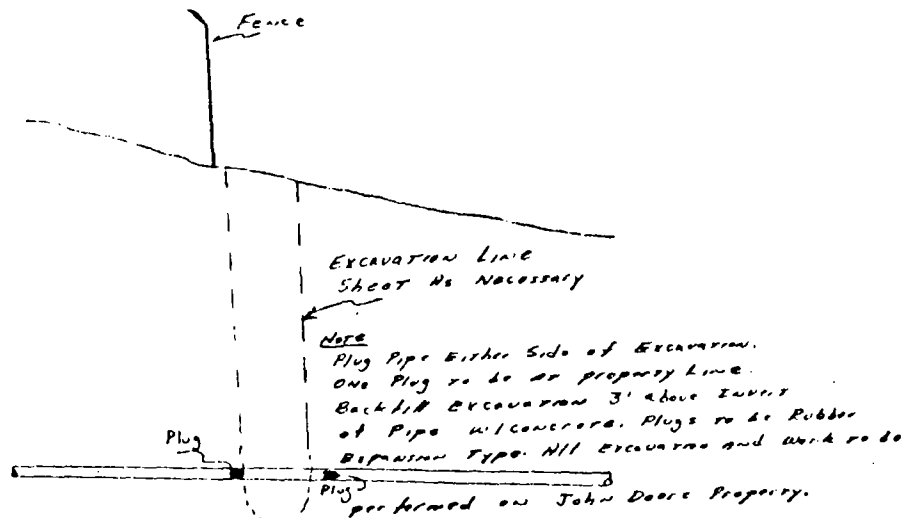 Fence
Excavation Line
Sheet As Necessary
Note
Plug Pipe Either Side of Excavation.
One Plug to be at property Line.
Backfill Excavation 3' above Invert
of Pipe w/concrete. Plugs to be Rubber
Expansion Type. All Excavation and Work to be
performed on John Deere Property.
Plug
Plug